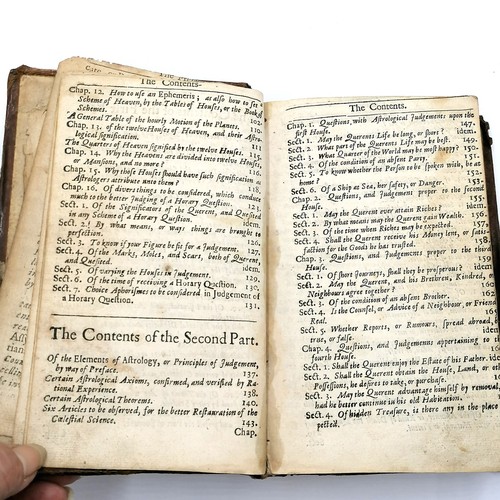 The Contents.
Chap. 12. How to use an Ephemeris; as also how to set a
Scheme of Heaven, by the Tables of Houses, or the Book of
Schemes. 102.
A General Table of the hourly Motion of the Planets. 110.
Chap. 13. of the twelve Houses of Heaven, and their Astro-
logical signification. 111
The Quarters of Heaven signified by the twelve Houses. 115.
Chap. 14. Why the Heavens are divided into twelve Houses,
or Mansions, and no more? 116.
Chap. 15. Why those Houses should have such signification as
Astrologers attribute unto them?
Chap. 16. Of divers things to be considered, which conduce
much to the better Judging of a Horary Question.
Sect. 1. Of the Significators of the Querent, and Quesited
in any Scheme of a Horary Question. 123.
Sect. 2. By what means, or ways things are brought to
perfection. 126.
Sect. 3. To know if your Figure be fit for a Judgement. 127.
Sect. 4. Of the Marks, Moles, and Scars, both of Querent
and Quesited. idem.
Sect. 5. Of varying the Houses in Judgement. 129.
Sect. 6. Of the time of receiving a Horary Question. 130.
Sect. 7. Choice Aphorismes to be considered in Judgement of
a Horary Question. 131.
The Contents of the Second Part.
Of the Elements of Astrology, or Principles of Judgement,
by way of Preface. 137.
Certain Astrological Axioms, confirmed, and verified by Ra-
tional Experience. 138.
Certain Astrological Theorems. 140.
Six Articles to be observed, for the better Restauration of the
Cœlestial Science. 143.
Chap.
The Contents.
Chap. 1. Questions, with Astrological Judgements upon the
first House. 147.
Sect. 1. May the Querents Life be long, or short? idem.
Sect. 2. What part of the Querents Life may be best. 149.
Sect. 3. What Quarter of the World may be most happy? 150.
Sect. 4. Of the condition of an absent Party. 151.
Sect. 5. To know whether the Person to be spoken with, be at
home? 152.
Sect. 6. Of a Ship at Sea, her safety, or Danger. 153.
Chap. 2. Questions, and Judgement proper to the second
House. 155.
Sect. 1. May the Querent ever attain Riches?
Sect. 2. By what means may the Querent gain Wealth. 156.
Sect. 3. Of the time when Riches may be expected. 157.
Sect. 4. Shall the Querent receive his Money lent, or satis-
faction for the Goods he hat trusted. 158.
Chap. 3. Questions, and Judgements proper to the third
House. 159.
Sect. 1. Of short Journeys, shall they be prosperous? idem
Sect. 2. May the Querent, and his Brethren, Kindred, or
Neighbours agree together?
Sect. 3. Of the condition of an absent Brother.
Sect. 4. Is the Counsel, or Advice of a Neighbour, or Friend
Real.
Sect. 5. Whether Reports, or Rumours, spread abroad,
true, or false.
Chap. 4. Questions, and Judgements appertaining to the
fourth House.
Sect. 1. Shall the Querent enjoy the Estate of his Father.
Sect. 2. Shall the Querent obtain the House, Land, or other
Possessions, he desires to take, or purchase.
Sect. 3. May the Querent advantage himself by removing,
had he better continue in his old Habitation.
Sect. 4. Of hidden Treasure, is there any in the place
pected.